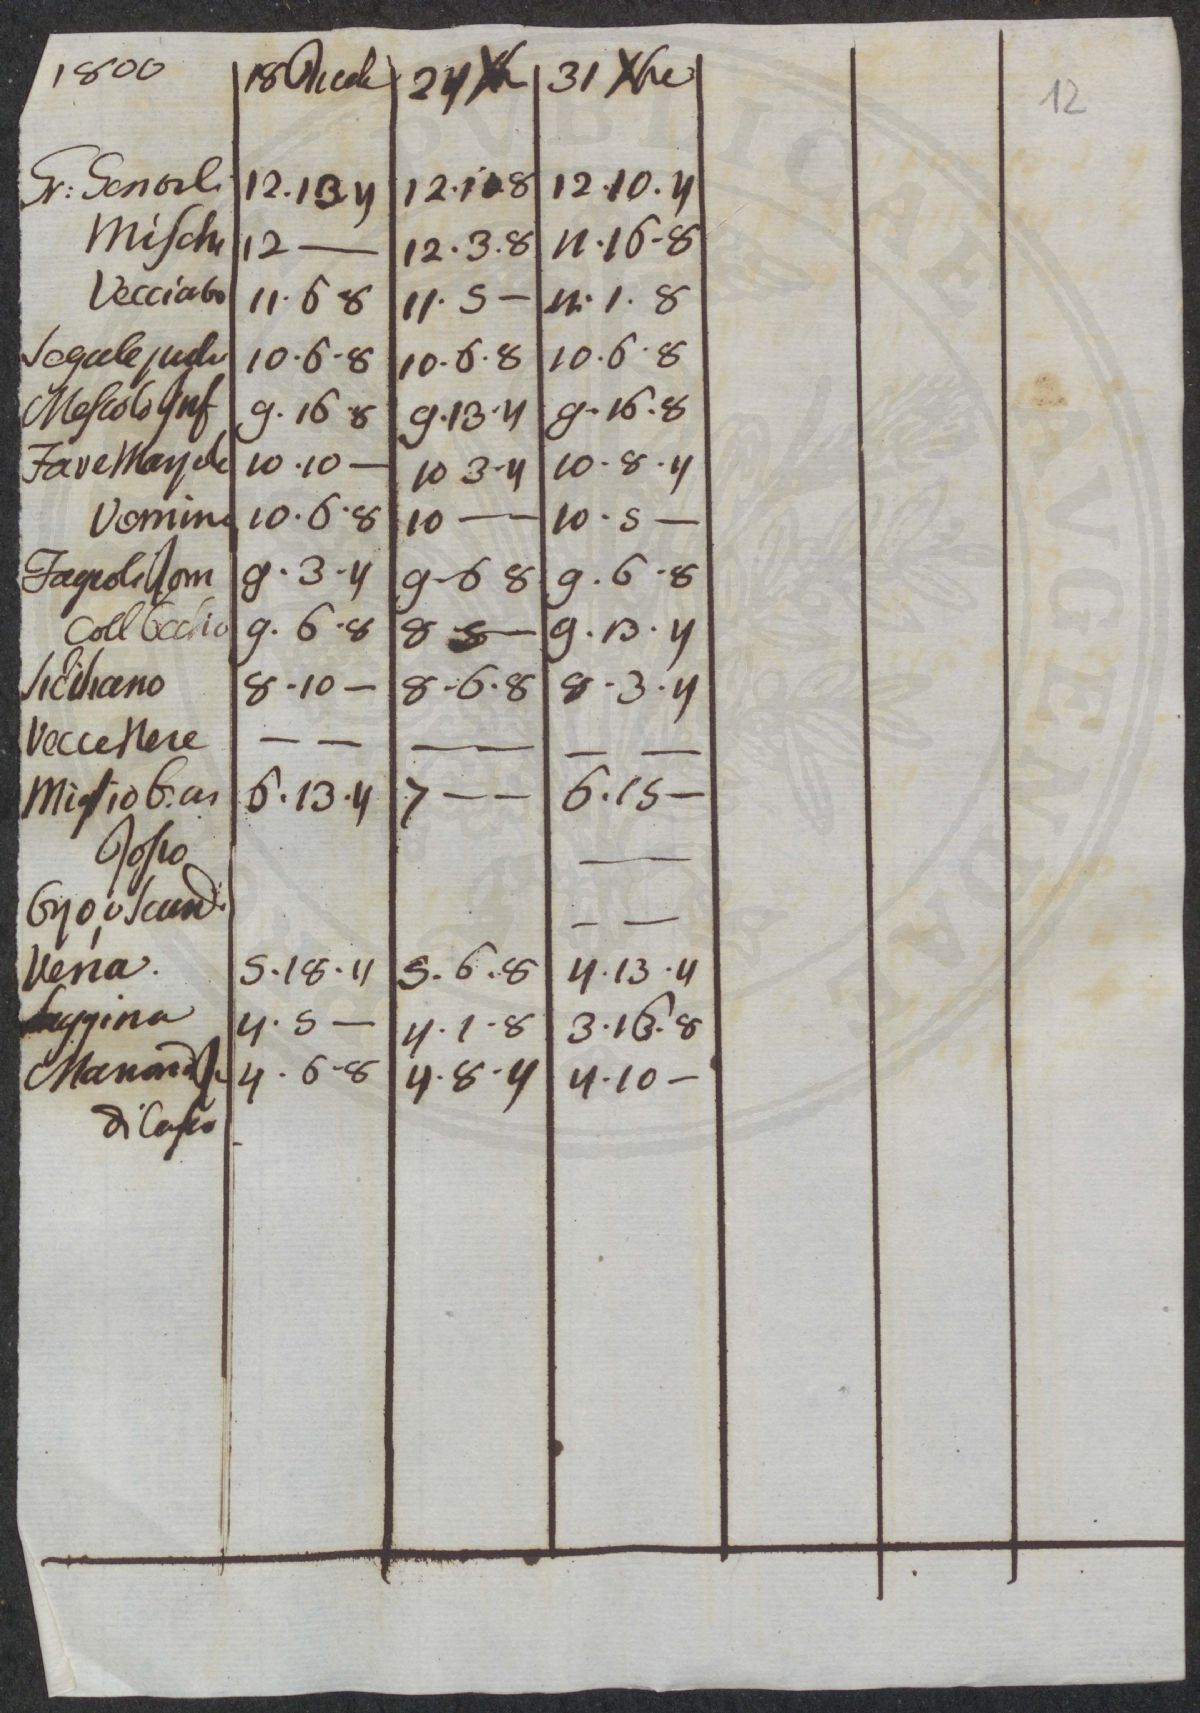 1800 18 24 Xbr 31 Xbre
12
Gr: Genorli 12.13 4 12.10.8 12.10.4
Mischi 12 — 12.3.8 11.16-8
Vecciato 11.6 8 11.5 — 11.1.8
Segale 10.6-8 10.6.8 10.6.8
Mescolo Inf 9.16 8 9.13.4 9-16.8
Fave 10.10 — 10 3-4 10-8.4
Vernine 10.6.8 10 — 10.5 —
Fagioli 9.3-4 9-6 8 9.6-8
Coll Occhio 9.6-8 8 8 — 9.13.4
Siciliano 8-10 — 8-6.8 8-3.4
Vecce Nere — — — — — —
Miglio 6.13.4 7 — — 6.15 —
Rosso —
— —
Vena. 5.18.4 5.6.8 4.13.4
Saggina 4.5 — 4.1-8 3.16.8
4.6-8 4.8-4 4.10 —
di
PVBLICAE AVGENDAE